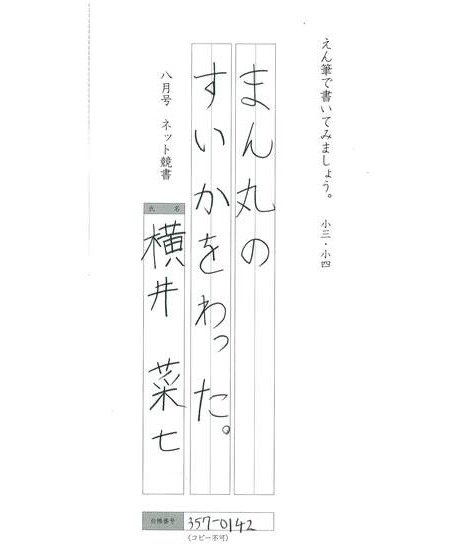 えん筆で書いてみましょう。 小三・小四
まん丸の
すいかをわった。
八月号 ネット競書
氏 名
横井 菜七
会務番号 357-0142
(コピー不可)